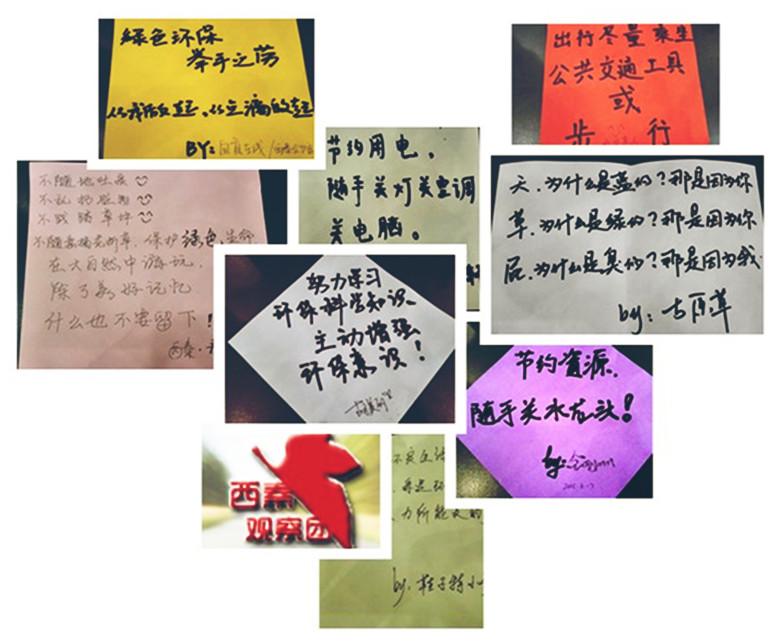 绿色环保
举手之劳
从我做起、从点滴做起
BY:
出行尽量乘坐
公共交通工具
或
步行
不随地吐痰
不乱扔垃圾
不践踏草坪
不随意摘花折草，保护绿色生命
在大自然中游玩，
除了美好记忆
什么也不要留下！
节约用电，
随手关灯关空调
关电脑。
天，为什么是蓝的？那是因为你
草，为什么是绿的？那是因为你
屁，为什么是臭的？那是因为我
by:
努力学习
环保科学知识、
主动增强
环保意识！
节约资源，
随手关水龙头！
by:
西秦
观察团
力所能及的
by: